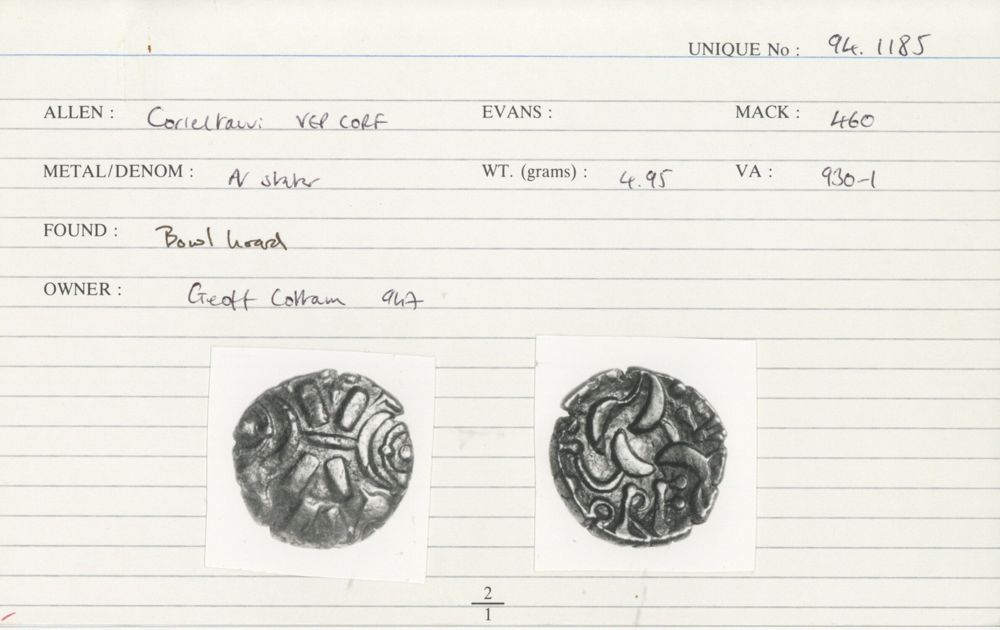 UNIQUE No : 94.1185
ALLEN : Corieltauvi VEP CORF EVANS : MACK : 460
METAL/DENOM : AV stater WT. (grams) : 4.95 VA : 930-1
FOUND : Bowl hoard
OWNER : Geoff Cottam 947
2
1